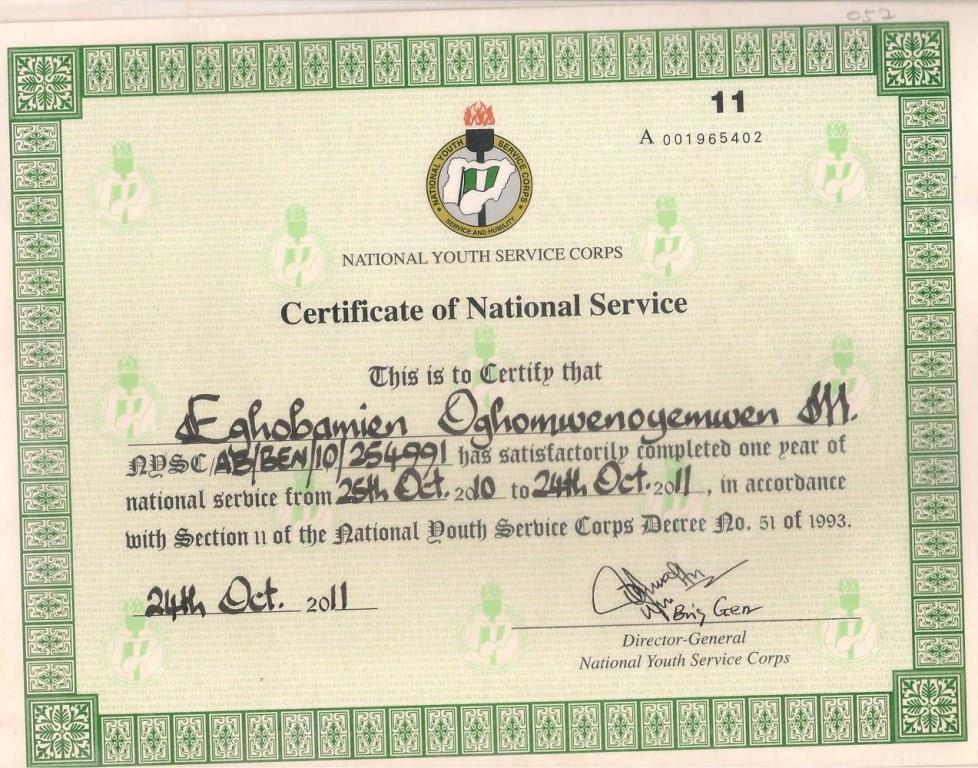 052
11
A 001965402
NATIONAL YOUTH SERVICE CORPS
SERVICE AND HUMILITY
NATIONAL YOUTH SERVICE CORPS
Certificate of National Service
This is to Certify that
Eghobamien Oghomwenoyemwen M.
NYSC/AB/BEN/10/254991 has satisfactorily completed one year of
national service from 25th Oct. 2010 to 24th Oct. 2011, in accordance
with Section 11 of the National Youth Service Corps Decree No. 51 of 1993.
24th Oct. 2011
Brig Gen
Director-General
National Youth Service Corps